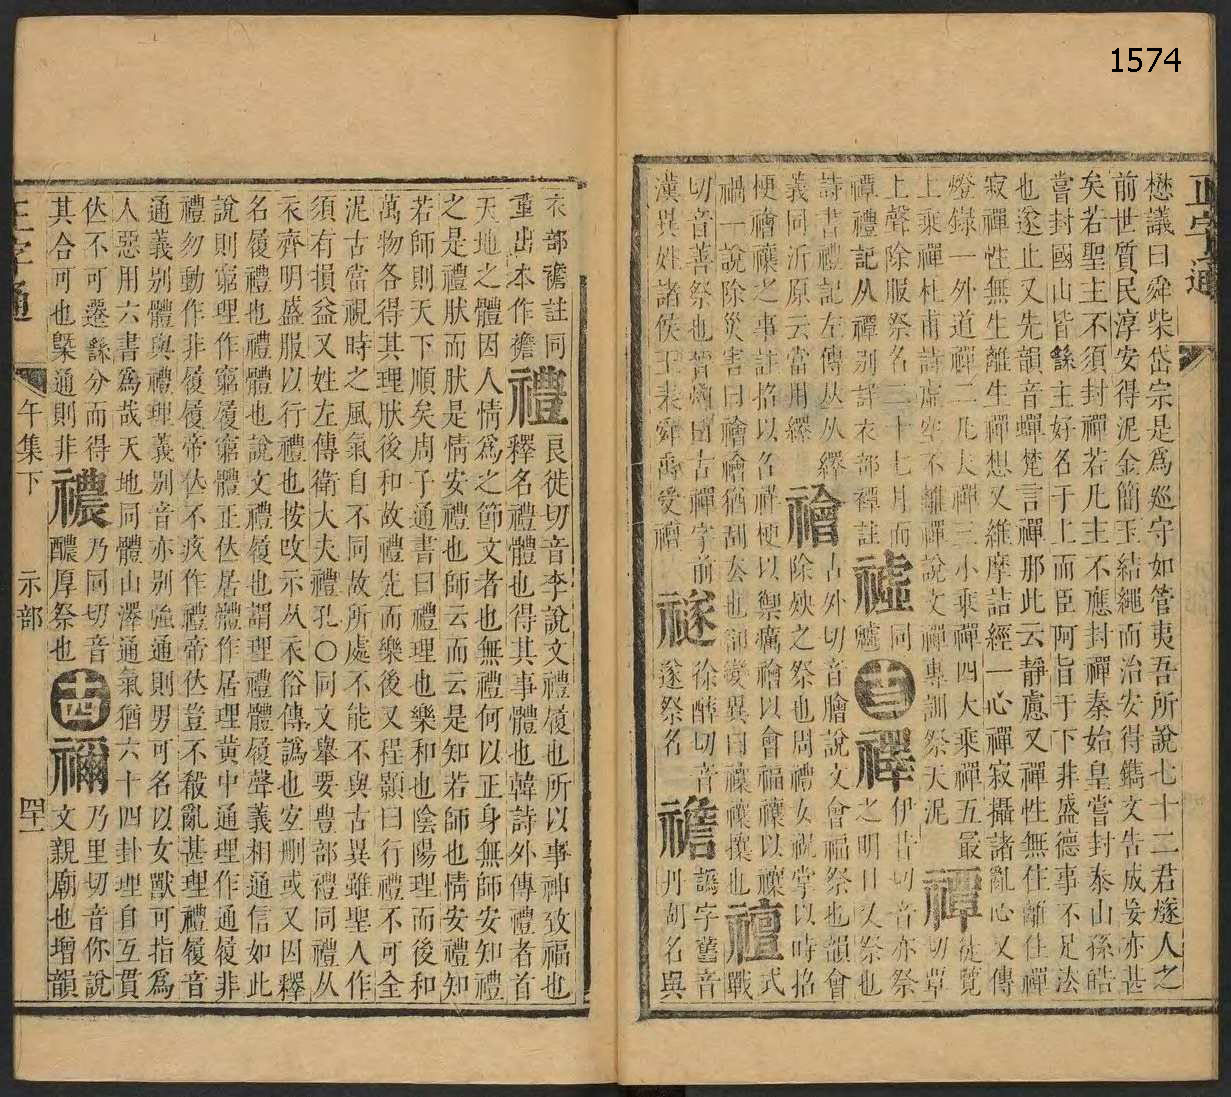 1574
正字通
懋議曰舜柴岱宗是爲巡守如管夷吾所說七十二君燧人之
前世質民淳安得泥金簡玉結繩而治安得鐫文告成妄亦甚
矣若聖主不須封禪若凡主不應封禪秦始皇嘗封泰山孫皓
嘗封國山皆繇主好名于上而臣阿旨于下非盛德事不足法
也遂止又先韻音蟬梵言禪那此云靜慮又禪性無住離住禪
寂禪性無生離生禪想又維摩詰經一心禪寂攝諸亂心又傳
燈錄一外道禪二凡夫禪三小乘禪四大乘禪五最
上乘禪杜甫詩虛空不離禪說文禪專訓祭天泥 禫徒覽切覃
上聲除服祭名二十七月而
禫禮記从禫别詳衣部襌註 䄐同䰧 十三 襗伊昔切音亦祭之明日又祭也
詩書禮記左傳丛从繹
義同沂原云當用繹 禬古外切音膾說文會福祭也韻會
除殃之祭也周禮女祝掌以時招
梗禬禳之事註招以名祥梗以禦癘禬以會福禳以禳
禍一說除災害曰禬禬猶刮去也卻變異曰禳禳攘也 䄠式戰
切音善祭也晉𤅊曰古禪字前
漢異姓諸侯王表舜禹受䄠 禭徐醉切音遂祭名 襜譌字舊音丹胡名與
衣部襜註同
重出本作襜 禮良徙切音李說文禮履也所以事神致福也
釋名禮體也得其事體也韓詩外傳禮者首
天地之體因人情爲之節文者也無禮何以正身無師安知禮
之是禮肰而肰是情安禮也師云而云是知若師也情安禮知
若師則天下順矣周子通書曰禮理也樂和也陰陽理而後和
萬物各得其理肰後和故禮先而樂後又程顥曰行禮不可全
泥古當視時之風氣自不同故所處不能不與古異雖聖人作
須有損益又姓左傳衛大夫禮孔○同文舉要豊部禮同禮从
衣齊明盛服以行禮也按攺示从衣俗傳譌也宐刪或又因釋
名履禮也禮體也說文禮履也謂理禮體履聲義相通信如此
說則窮理作窮履窮體正位居體作居理黃中通理作通履非
禮勿動作非履履帝位不疚作禮帝位豈不殽亂甚理禮履音
通義别體與禮理義别音亦别強通則男可名以女獸可指爲
人惡用六書爲哉天地同體山澤通氣猶六十四卦理自互貫
位不可遷繇分而得
其合可也槩通則非 禯乃同切音醲厚祭也 十四 禰乃里切音你說文親廟也增韻
正字通
午集下
示部
四十一